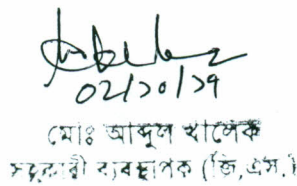 ০২/১০/১৭
মোঃ আব্দুল খালেক
সহকারী ব্যবস্থাপক (জি,এস.)